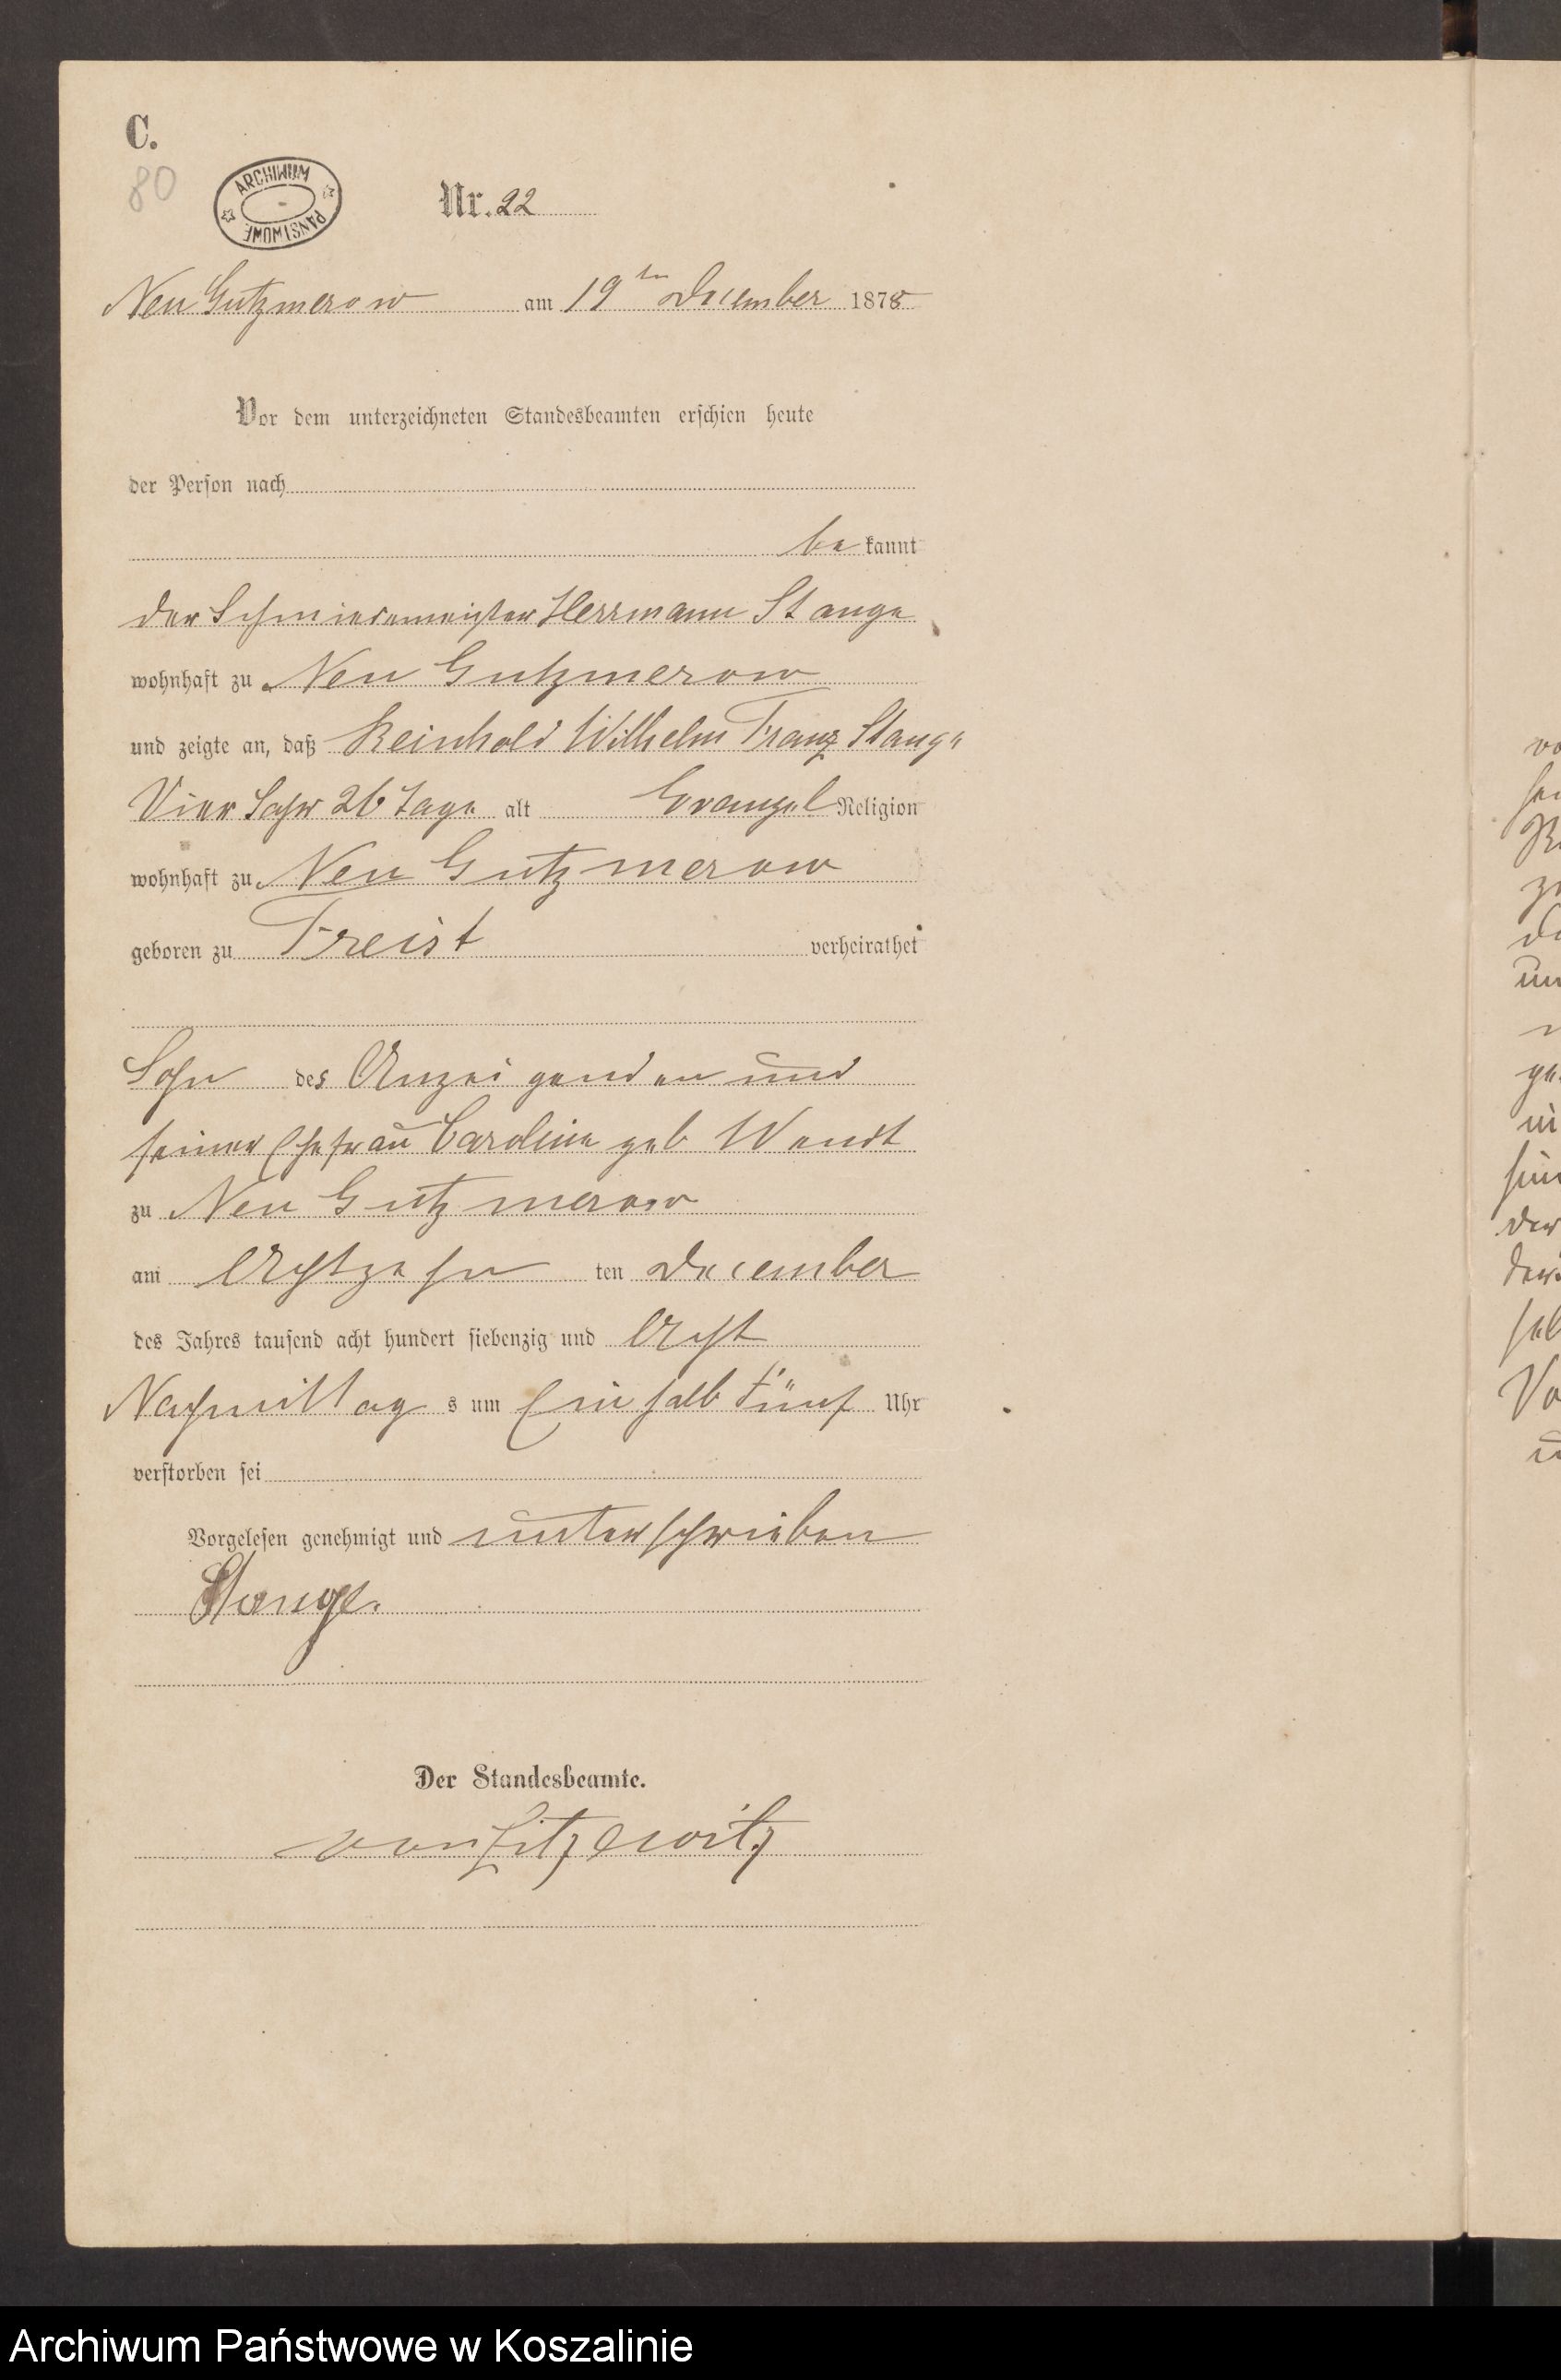 C.
80
ARCHIWUM PAŃSTWOWE
Nr. 22
Neu Gutzmerow am 19ten December 1878
Vor dem unterzeichneten Standesbeamten erschien heute
der Person nach
be kannt
der Schmiedemeister Herrmann Stange
wohnhaft zu Neu Gutzmerow
und zeigte an, daß Reinhold Wilhelm Franz Stange
Vier Jahr 26 Tage alt Evangel Religion
wohnhaft zu Neu Gutzmerow
geboren zu Freist verheirathet
Sohn des Anzeigenden und
seiner Ehefrau Caroline geb Wendt
zu Neu Gutzmerow
am Achtzehn ten December
des Jahres tausend acht hundert siebenzig und Acht
Nachmittag s um Ein halb Fünf Uhr
verstorben sei
Vorgelesen genehmigt und unterschrieben
Stange.
Der Standesbeamte.
von Zitzewitz
Archiwum Państwowe w Koszalinie